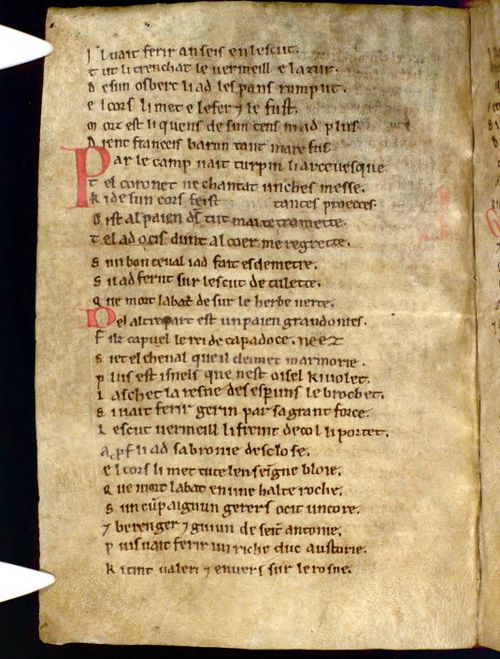 I l uait ferir anseis en lescut.
T ut li trenchat le uermeill e lazur.
D e sun osberc li ad les pans rumput.
e l cors li met e le fer ⁊ le fust.
M ort est li quens de sun tens niad plus.
D ient franceis barun tant mare fus
P ar le camp uait turpin li arceuesque
T el coronet ne chantat unches messe.
K i de sun cors feist tantes proecces.
D ist al paien ds tut mal te tramette.
T el ad ocis dunt al coer me regrette.
S un bon ceual i ad fait esdemetre.
S i lad ferut sur lescut de tulette.
Q ue mort labat desur le herbe uerte.
D e laltre part est un paien grandonies.
F ilz capuel le rei de capadoce.
S iet el cheual que il cleimet marmorie.
P lus est isnels que nest oisel ki uolet.
L aschet la resne des espuns le brochet.
S i uait ferir gerin par sa grant force.
L escut uermeill li freint de col li portet.
ap̄ſ li ad sa bronie desclose.
e l cors li met tute lenseigne bloie.
Q ue mort labat en une halte roche.
S un cūpaignun gerers ocit uncore.
⁊ berenger ⁊ guiun de seīt antonie.
P uis uait ferir un riche duc austorie.
K i tint ualeri ⁊ enuers sur le rosne.